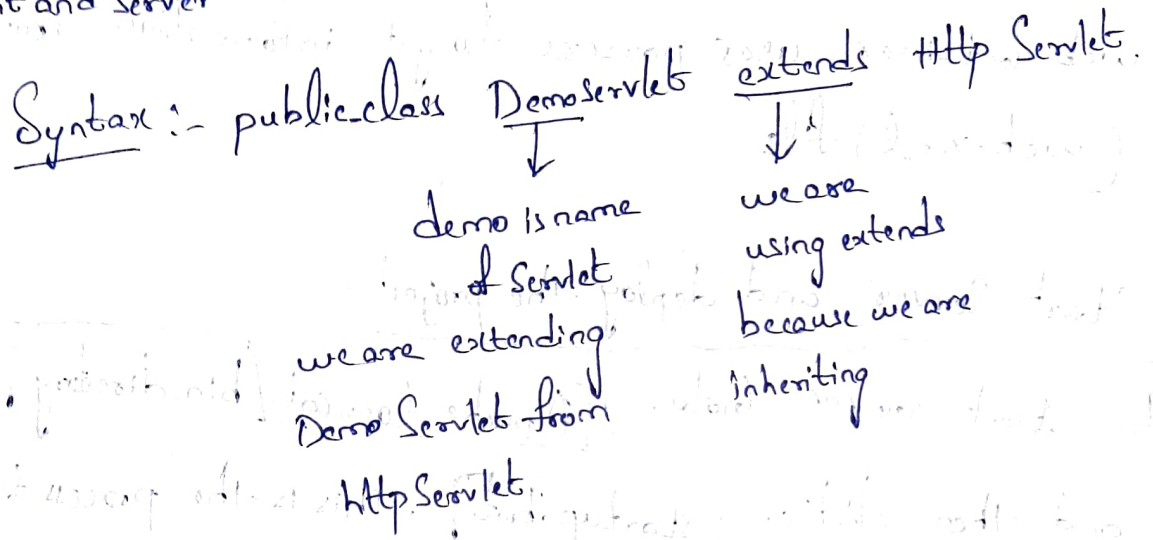 and server
Syntax :- public class DemoServlet extends Http Servlet.
demo is name
of Servlet
we are extending
Demo Servlet from
http Servlet.
we are
using extends
because we are
inheriting